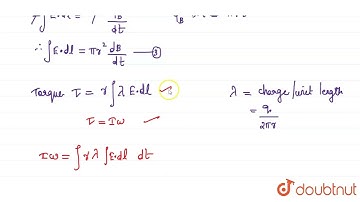 ∫E·dl = dB/dt
∴ ∫E·dl = πr² dB/dt — ③
Torque τ = r∫λ E·dl
λ = charge/unit length
= q/2πr
τ = Iω
Iω = ∫rλ ∫E·dl dt
doubtnut